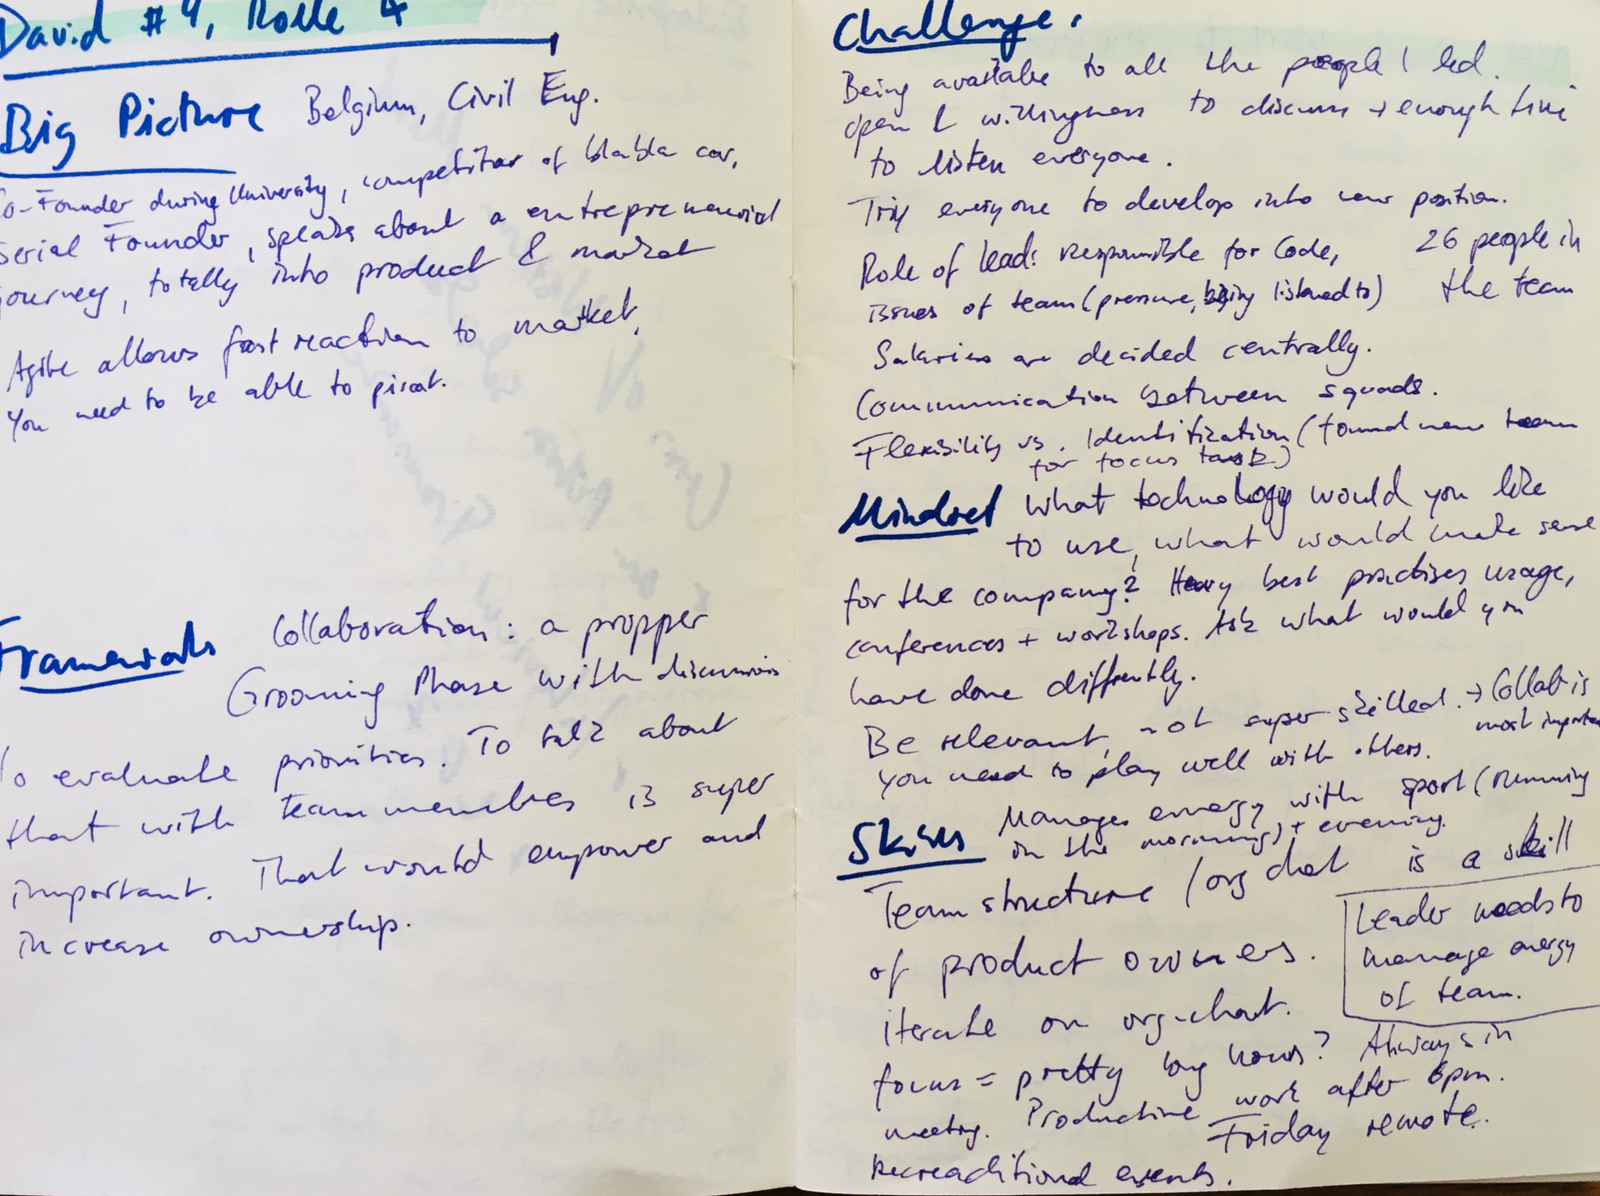 David #4, Rolle 4
Big Picture Belgium, Civil Eng.
Co-Founder during University, competitor of blabla car,
Serial Founder, speaks about a entrepreneurial
journey, totally into product & market
Agile allows fast reaction to market,
You need to be able to pivot.
Frameworks Collaboration: a propper
Grooming Phase with discussions
To evaluate priorities. To talk about
that with team members is super
important. That would empower and
increase ownership.
Challenge:
Being available to all the people I led.
open & willingness to discuss + enough time
to listen everyone.
Try everyone to develop into new position.
Role of lead: responsible for Code,
issues of team (pressure, being listened to)
26 people in
the team
Salaries are decided centrally.
Communication between squads.
Flexibility vs. Identitization (found new team
for focus task)
Mindset What technology would you like
to use, what would make sense
for the company? Heavy best practises usage,
conferences + workshops. Ask what would you
have done differently.
Be relevant, not super skilled. → Collab is
most important
You need to play well with others.
Skills Manages energy with sport (running
in the morning) + evening.
Team structure / org chat is a skill
of product owners.
iterate on org-chart.
Leader needs to
manage energy
of team.
focus = pretty long hours? Always in
meeting. Productive work after 6pm.
Friday remote.
Recreaditional events.